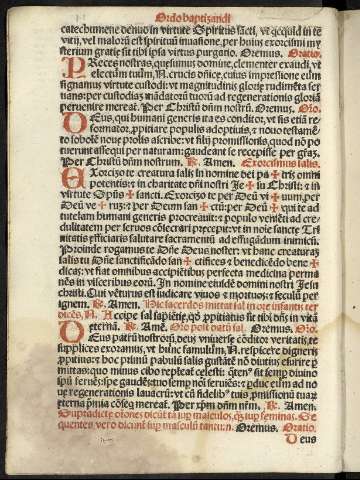 Ordo baptizandi
catechumene denuo in virtute Spiritus sancti, ut quicquid in te
vitij, vel malorum est spirituum invasione, per huius exorcismi my
sterium gratie sit tibi ipsa virtus purgatio. Oremus. Oratio.
PReces nostras, quesumus domine, clementer exaudi, et
electum tuum, N. crucis dominice, cuius impressione eum
signamus virtute custodi: ut magnitudinis glorie rudimenta ser
vans: per custodiam mandatorum tuorum ad regenerationis gloriam
pervenire mereat. Per Christum dominum nostrum. Oremus. Oro.
DEus, qui humani generis ita es conditor, ut sis etiam re
formator, propitiare populis adoptivis, et novo testamen
to sobolem nove prolis ascribe: ut filij promissionis, quod non po
tuerunt assequi per naturam: gaudeant se recepisse per gratiam.
Per Christum dominum nostrum. R. Amen. Exorcismus salis.
EXorcizo te creatura salis in nomine dei pa ✠ tris omni
potentis: et in charitate domini nostri Je ✠ su Christi: et in
virtute Spiritus ✠ sancti. Exorcizo te per Deum vi ✠ vum, per
Deum ve ✠ rum: et per Deum san ✠ ctum: per Deum ✠ qui te ad
tutelam humani generis procreavit: et populo venienti ad cre
dulitatem per servos consecrari precepit: ut in nomine sancte Tri
nitatis efficiaris salutare sacramentum ad effugandum inimicum.
Proinde rogamus te Domine Deus noster: ut hanc creaturam
salis tu Domine sanctificando san ✠ cifices et benedicendo bene ✠
dicas: ut fiat omnibus accipientibus perfecta medicina perma
nens in visceribus eorum. In nomine eiusdem domini nostri Jesu
christi. Qui venturus est iudicare vivos et mortuos: et seculum per
ignem. R. Amen. Hic sacerdos mittat sal in ore infantis ter
dicens, N. Accipe sal sapientie, quod propitiatus sit tibi dominus in vitam
eternam. R. Amen. Oro post datum sal. Oremus. Oro.
DEus patrum nostrorum, deus universe conditor veritatis, te
supplices exoramus, ut hunc famulum, N. respicere digneris
propitius: et hoc primum pabulum salis gustantem non diutius esurire per
mittas: quo minus cibo repleat celesti: quatenus sit semper domino
spiritu fervens: spe gaudens: tuo semper nomini serviens: et perduc eum ad no
ve regenerationis lavacrum: ut cum fidelibus tuis promissionum tuarum
eterna premia consequi mereat. Per christum dominum nostrum. R. Amen.
Supradicte orationes dicuntur tam super masculos, quam super feminas. Se
quentes vero dicuntur super masculum tantum. Oremus. Oratio.
Deus